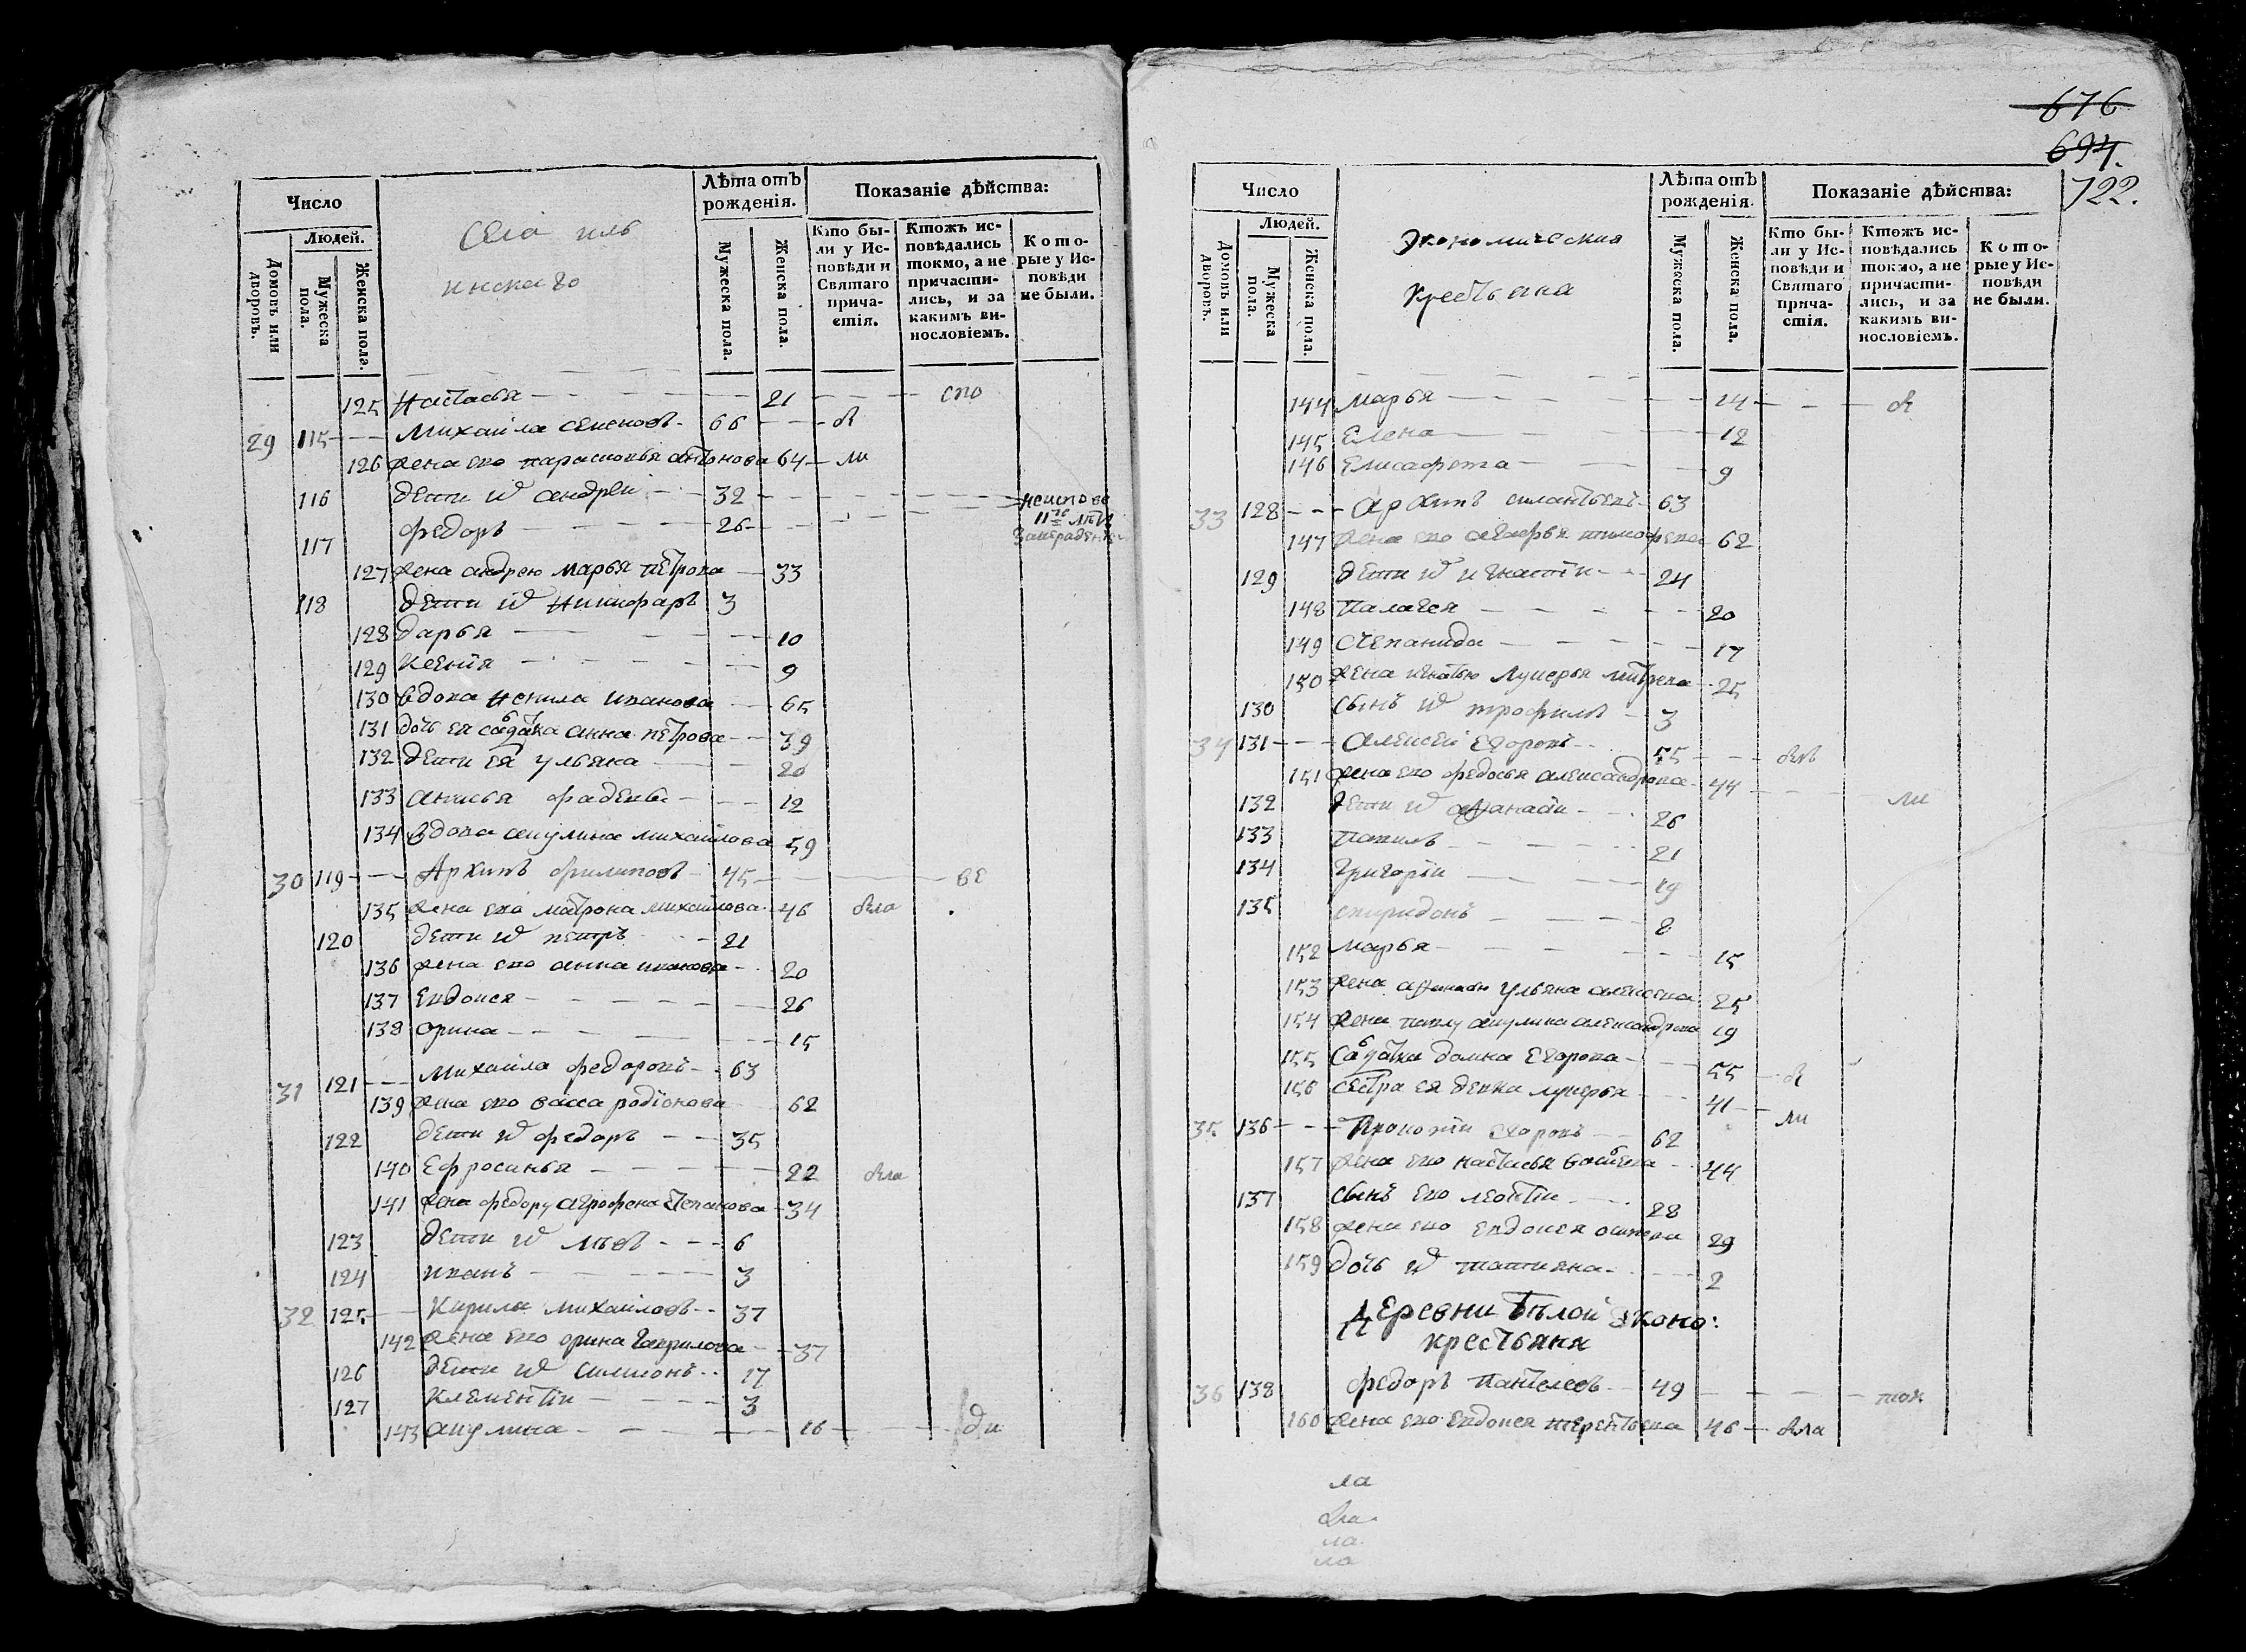 Число
Людей.
Домовъ или дворовъ.
Мужеска пола.
Женска пола.
Села иль
инскаго
Лѣта отъ рожденія.
Мужеска пола.
Женска пола.
Показаніе дѣйства:
Кто бы-
ли у Ис-
повѣди и
Святаго
прича-
стія.
Ктожъ ис-
повѣдались
токмо, а не
причасти-
лись, и за
какимъ ви-
нословіемъ.
Кото-
рые у Ис-
повѣди
не были.
125 Настасья 21 спо
29 115 Михаила Семеновъ 66
126 жена ево парасковья 64 ли
116 дети их андреи 32
117 федоръ 26
127 жена андрею марья петрова 33
118 дети их никифоръ 3
128 дарья 10
129 Ксенія 9
130 вдова ненила иванова 65
131 дочь ея анна петрова 39
132 дети ея ульяна 20
133 анисья фадеева 12
134 вдова акулина михаилова 59
30 119 Архипъ филиповъ 45 ве
135 жена ево матрона михаилова 46
120 дети их петръ 21
136 жена ево анна иванова 20
137 Евдокея 26
138 орина 15
31 121 Михаила федоровъ 63
139 жена ево васса родіонова 62
122 дети их федоръ 35
140 Ефросинья 22
141 жена федору агрофена степанова 34
123 дети их 6
124 иванъ 3
32 125 Кирила михаиловъ 37
142 жена ево орина гаврилова 37
126 дети их симионъ 17
127 Клементіи 3
143 акулина 16 ди
676
694.
722.
Число
Людей.
Домовъ или дворовъ.
Мужеска пола.
Женска пола.
Экономическия
крестьяна
Лѣта отъ рожденія.
Мужеска пола.
Женска пола.
Показаніе дѣйства:
Кто бы-
ли у Ис-
повѣди и
Святаго
прича-
стія.
Ктожъ ис-
повѣдались
токмо, а не
причасти-
лись, и за
какимъ ви-
нословіемъ.
Кото-
рые у Ис-
повѣди
не были.
144 Марья 14
145 Елена 12
146 Елисафета 9
33 128 Архипъ силантьевъ 63
147 жена ево агафья тимофеева 62
129 дети их игнатіи 24
148 палагея 20
149 степанида 17
150 жена игнатью лукерья 25
130 сынъ их трофимъ 3
34 131 Алексеи Егоровъ 55
151 жена ево федосья александрова 44 ли
132 дети их афанасіи 26
133 павилъ 21
134 григоріи 19
135 спиридонъ 8
152 марья 15
153 жена ульяна алексеева 25
154 жена павлу акулина александрова 19
155 домна Егорова 55
156 сестра ея девка лукерья 41 ли
35 136 Прокопіи Егоровъ 62
157 жена ево настасья 44
137 сынъ ево леонтіи 28
158 жена ево евдокея 29
159 дочь их татияна 2
Деревни Белой Эконо:
крестьяня
36 138 федоръ пантелеевъ 49
160 жена ево евдокея терентьева 46
ла
ла
ла